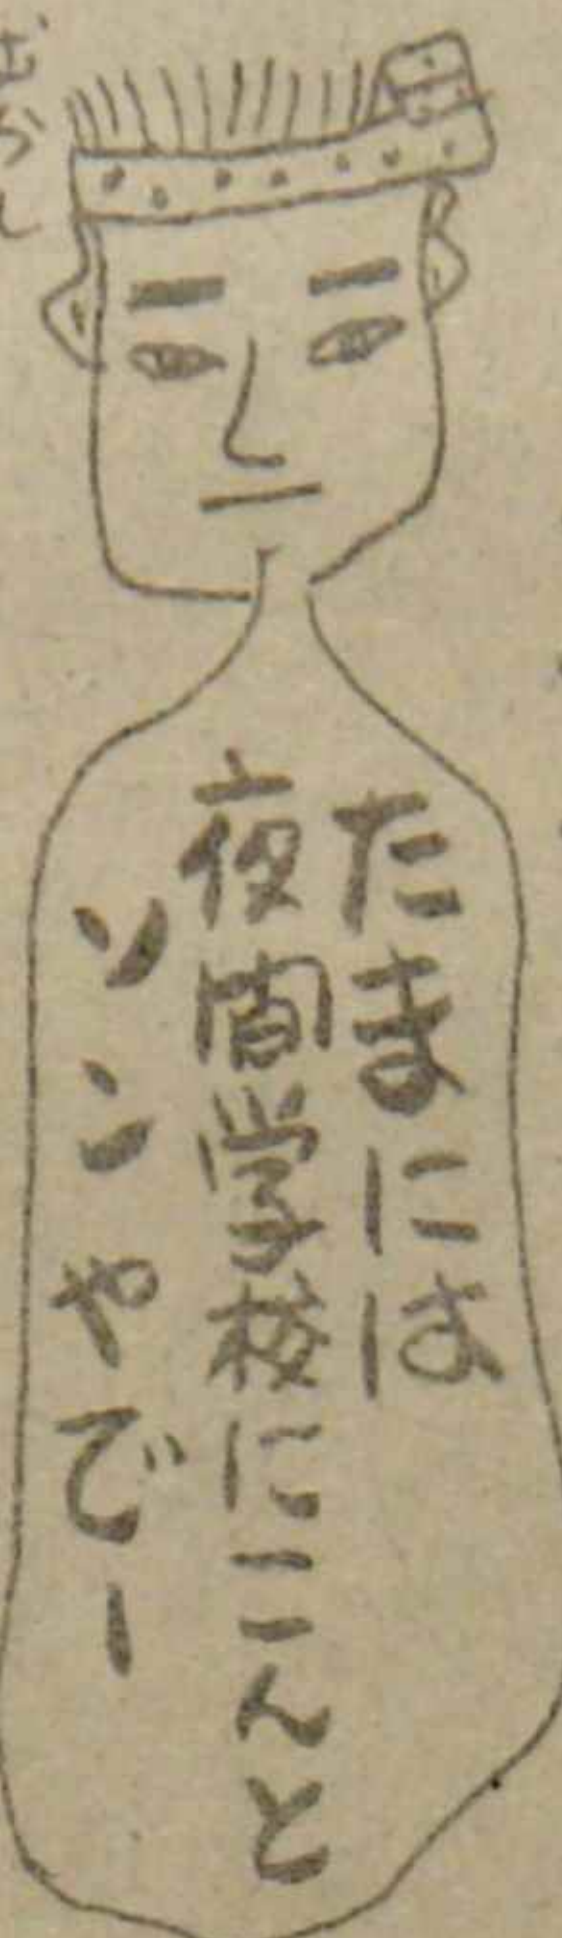 たまには
夜間学校にこんと
ソンやでー